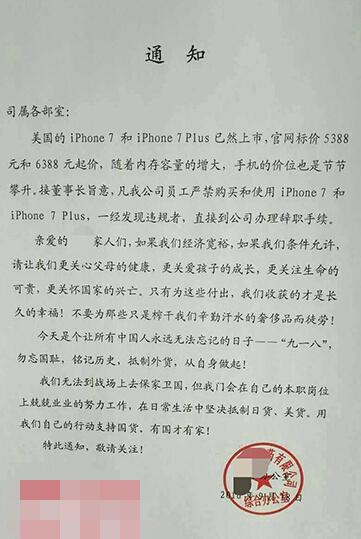 通 知
司属各部室:
美国的 iPhone 7 和 iPhone 7 Plus 已然上市,官网标价 5388
元和 6388 元起价,随着内存容量的增大,手机的价位也是节节
攀升。接董事长旨意,凡我公司员工严禁购买和使用 iPhone 7 和
iPhone 7 Plus,一经发现违规者,直接到公司办理辞职手续。
亲爱的 家人们,如果我们经济宽裕,如果我们条件允许,
请让我们更关心父母的健康,更关爱孩子的成长,更关注生命的
可贵,更关怀国家的兴亡。只有为这些付出,我们收获的才是长
久的幸福!不要为那些只是榨干我们辛勤汗水的奢侈品而徒劳!
今天是个让所有中国人永远无法忘记的日子——“九一八”,
勿忘国耻,铭记历史,抵制外货,从自身做起!
我们无法到战场上去保家卫国,但我门会在自己的本职岗位
上兢兢业业的努力工作,在日常生活中坚决抵制日货、美货。用
我们自己的行动支持国货,有国才有家!
特此通知,敬请关注!
药有限公司
办公室
2016 年 9 月 日
综合办公室